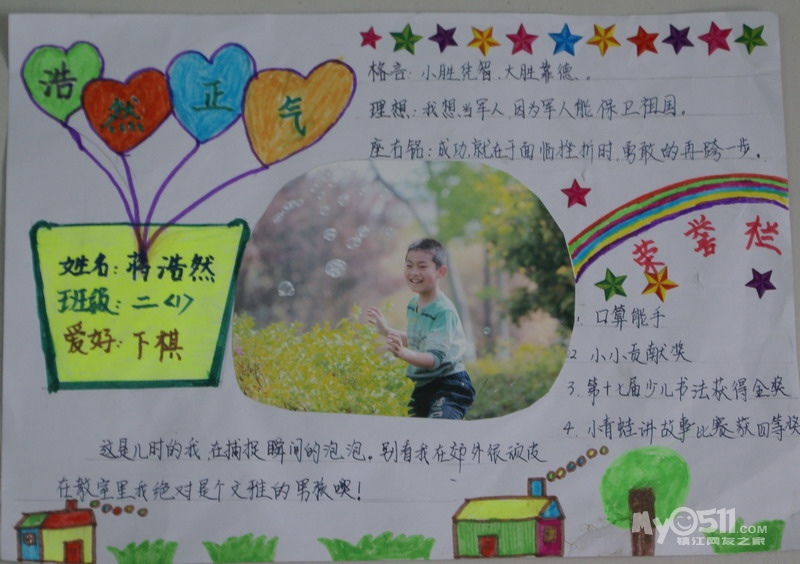 浩然正气
格言：小胜凭智，大胜靠德。
理想：我想当军人，因为军人能保卫祖国。
座右铭：成功，就在于面临挫折时，勇敢的再跨一步。
姓名：蒋浩然
班级：二<1>
爱好：下棋
荣誉栏
1. 口算能手
2 小小贡献奖
3. 第十七届少儿书法获得金奖
4. 小青蛙讲故事比赛获四等奖
这是儿时的我，在捕捉瞬间的泡泡。别看我在郊外很顽皮
在教室里我绝对是个文雅的男孩噢！
My0511.COM
镇江网友之家